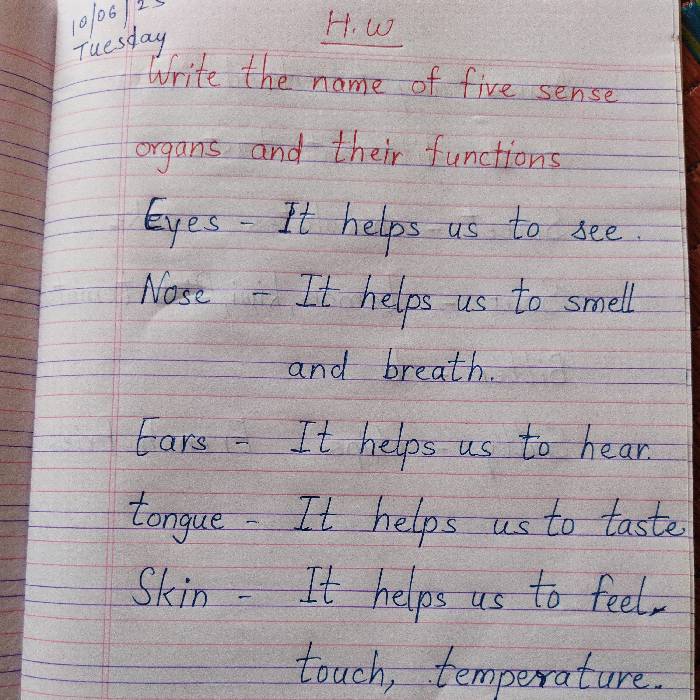 10/06/25
Tuesday
H.W
Write the name of five sense
organs and their functions
Eyes - It helps us to see.
Nose - It helps us to smell
and breath.
Ears - It helps us to hear.
tongue - It helps us to taste
Skin - It helps us to feel,
touch, temperature.